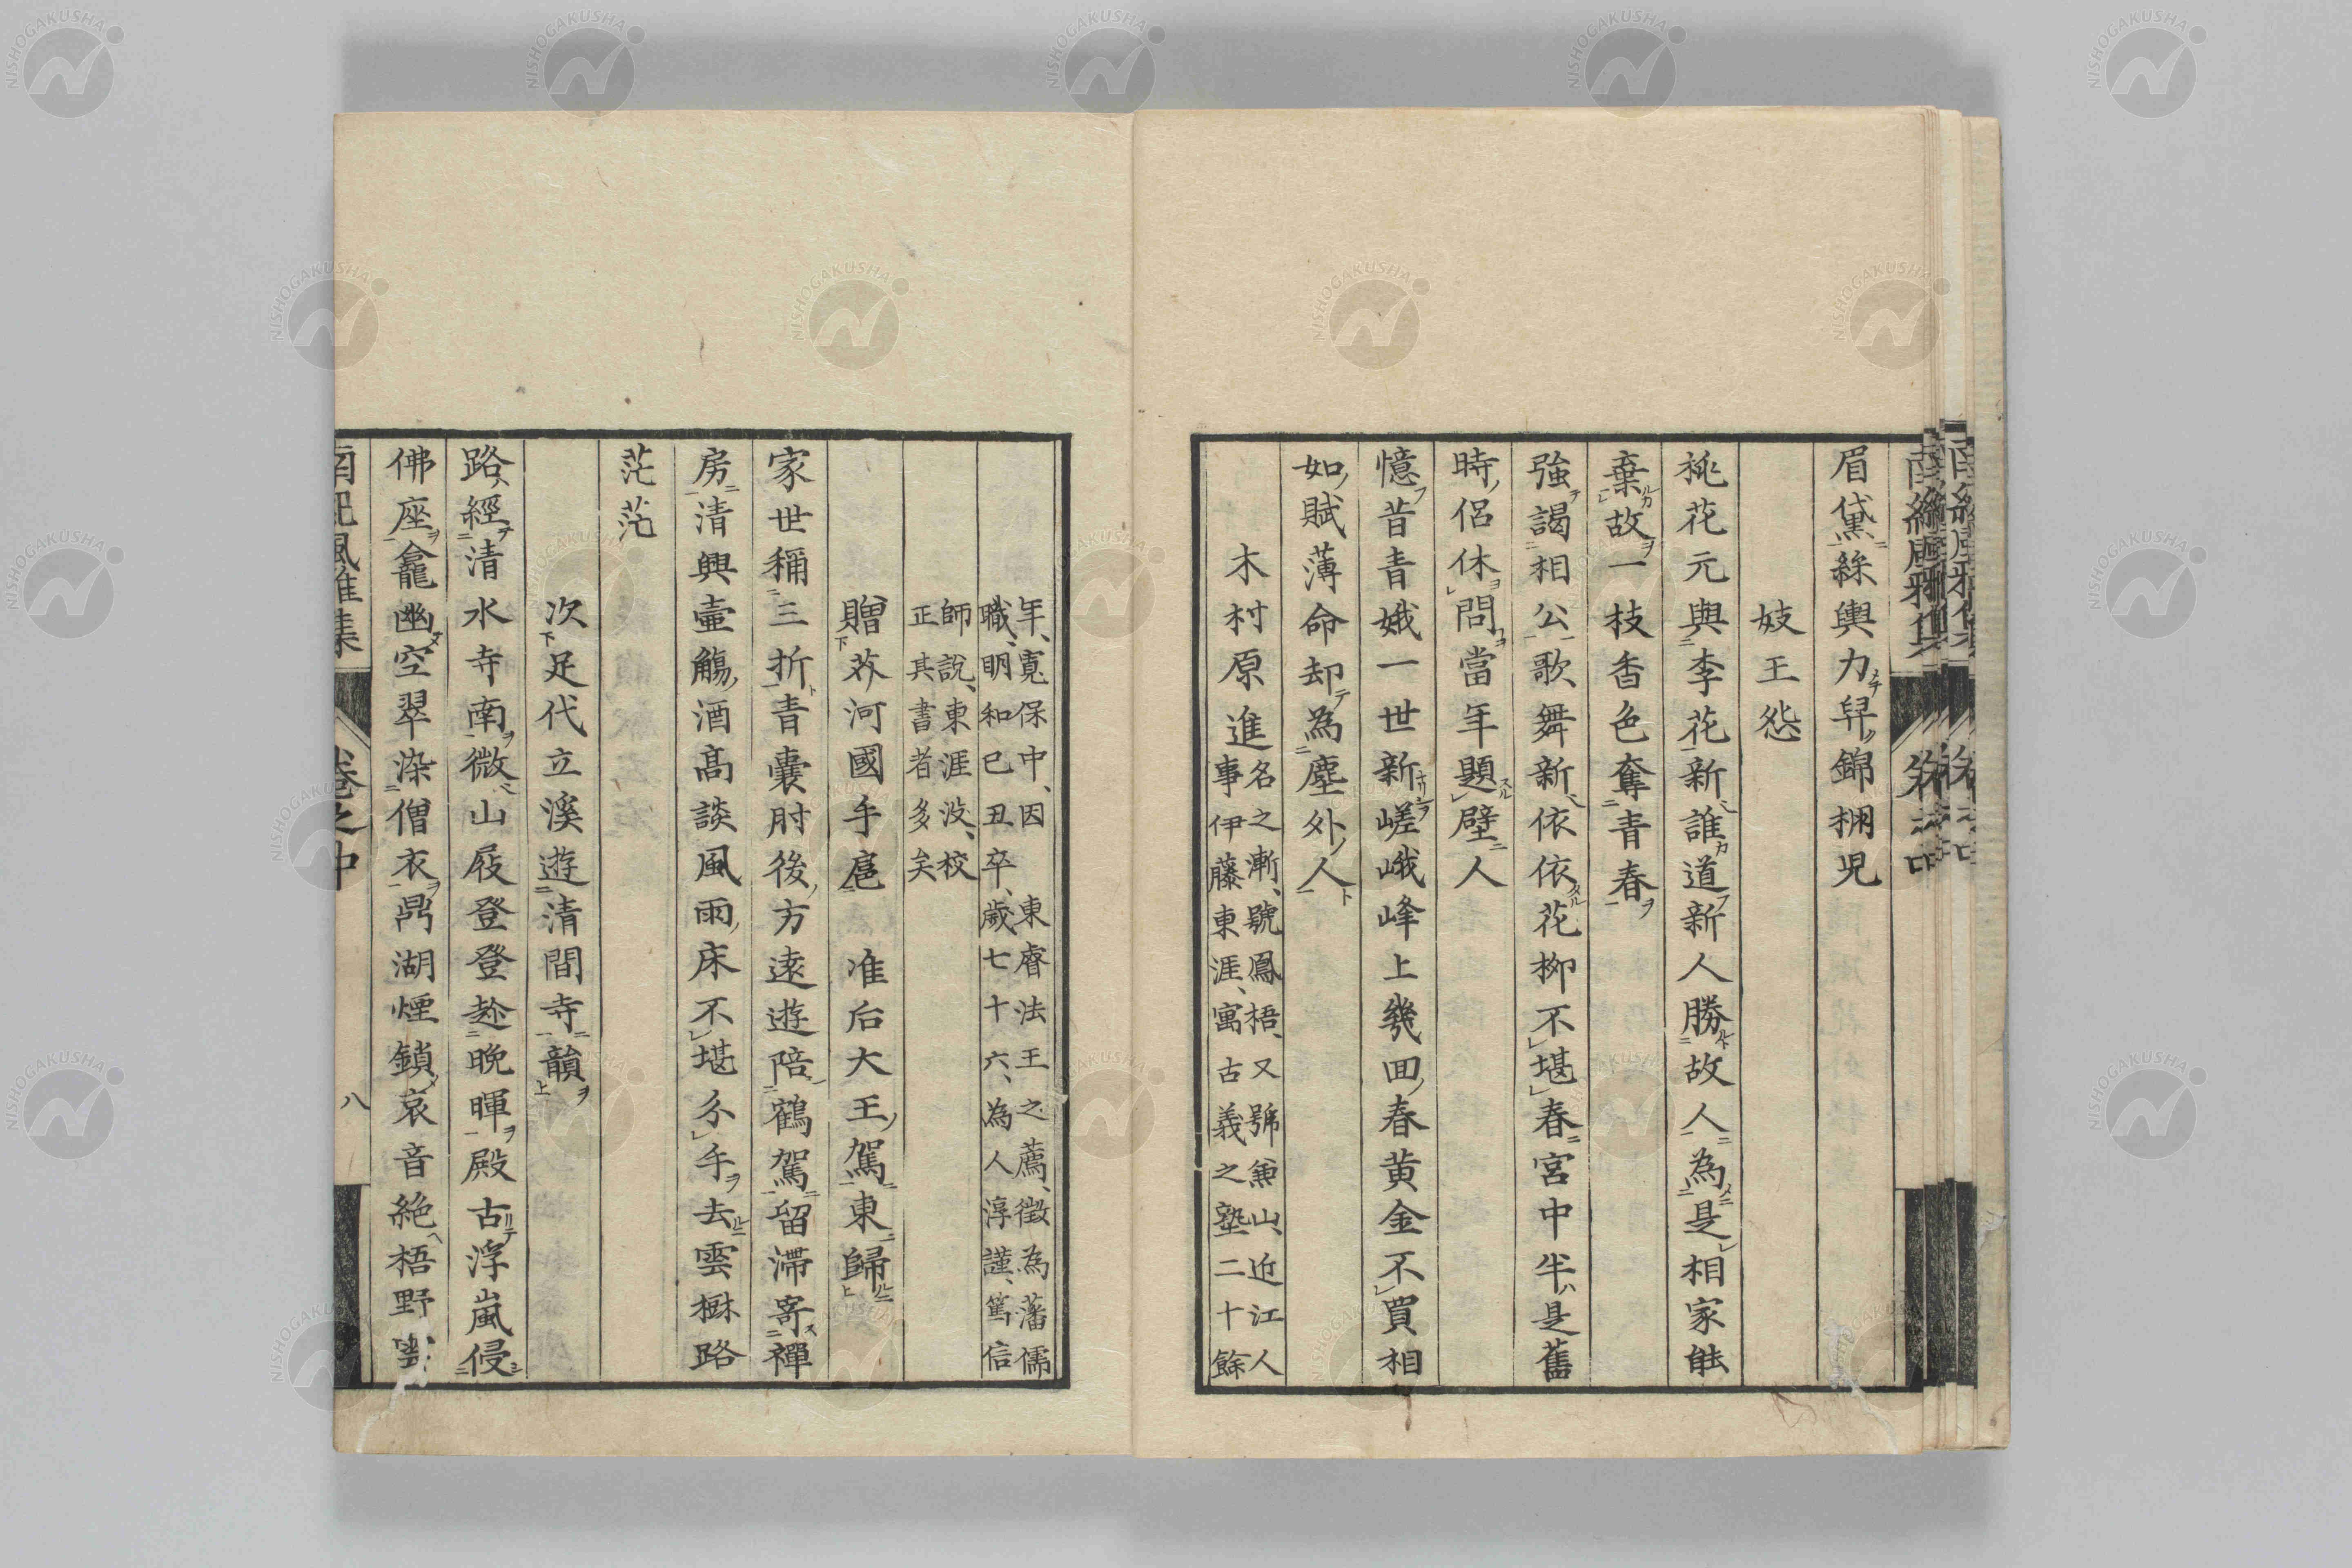 眉黛綠輿力舁錦棚児
妓王怨
桃花元與李花新誰道新人勝故人為是相家能
棄故一枝香色奪青春
強謁相公歌舞新依依花柳不堪春宮中半是舊
時侶休問當年題壁人
憶昔青娥一世新嵯峨峰上幾回春黄金不買相
如賦薄命却為塵外人
木村原進
名之漸、號鳳梧、又號兼山、近江人
事伊藤東涯、寓古義之塾二十餘
年、寛保中、因東睿法王之薦、徴為藩儒
職、明和己丑卒、歳七十六、為人淳謹、篤信
師說、東涯没、校
正其書者多矣
贈芥河國手扈准后大王駕東歸
家世稱三折青囊肘後方遠遊陪鶴駕留滯寄禪
房清興壷觴酒高談風雨床不堪分手去雲樹路
茫茫
次足代立溪遊清間寺韻
路經清水寺南微山屐登登趁晩暉殿古浮嵐侵
佛座龕幽空翠染僧衣鼎湖煙鎖哀音絶梧野雲
南紀風雅集
卷之中
八